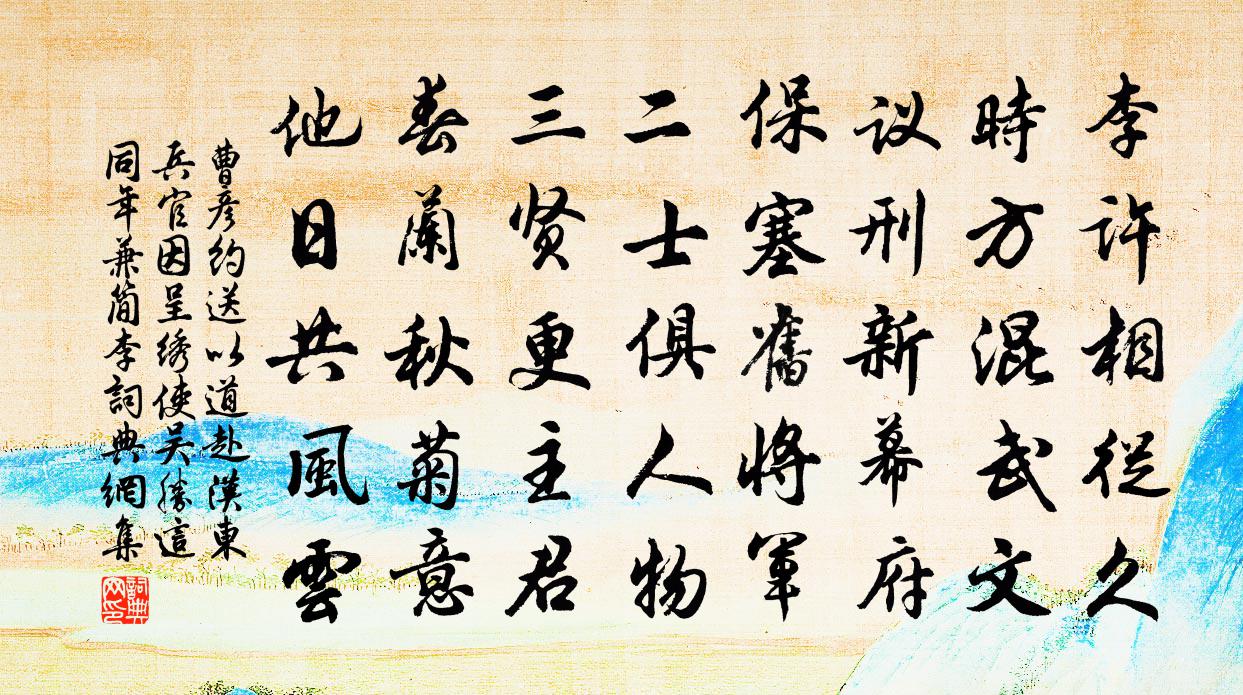 李许相從久
時方混武文
议刑新幕府
保塞舊將軍
二士俱人物
三贤更主君
春蘭秋菊意
他日共風雲
曹彦約送以道赴漢東
兵官因呈绣使吴勝這
同年兼简李詞典網集
詞典网印